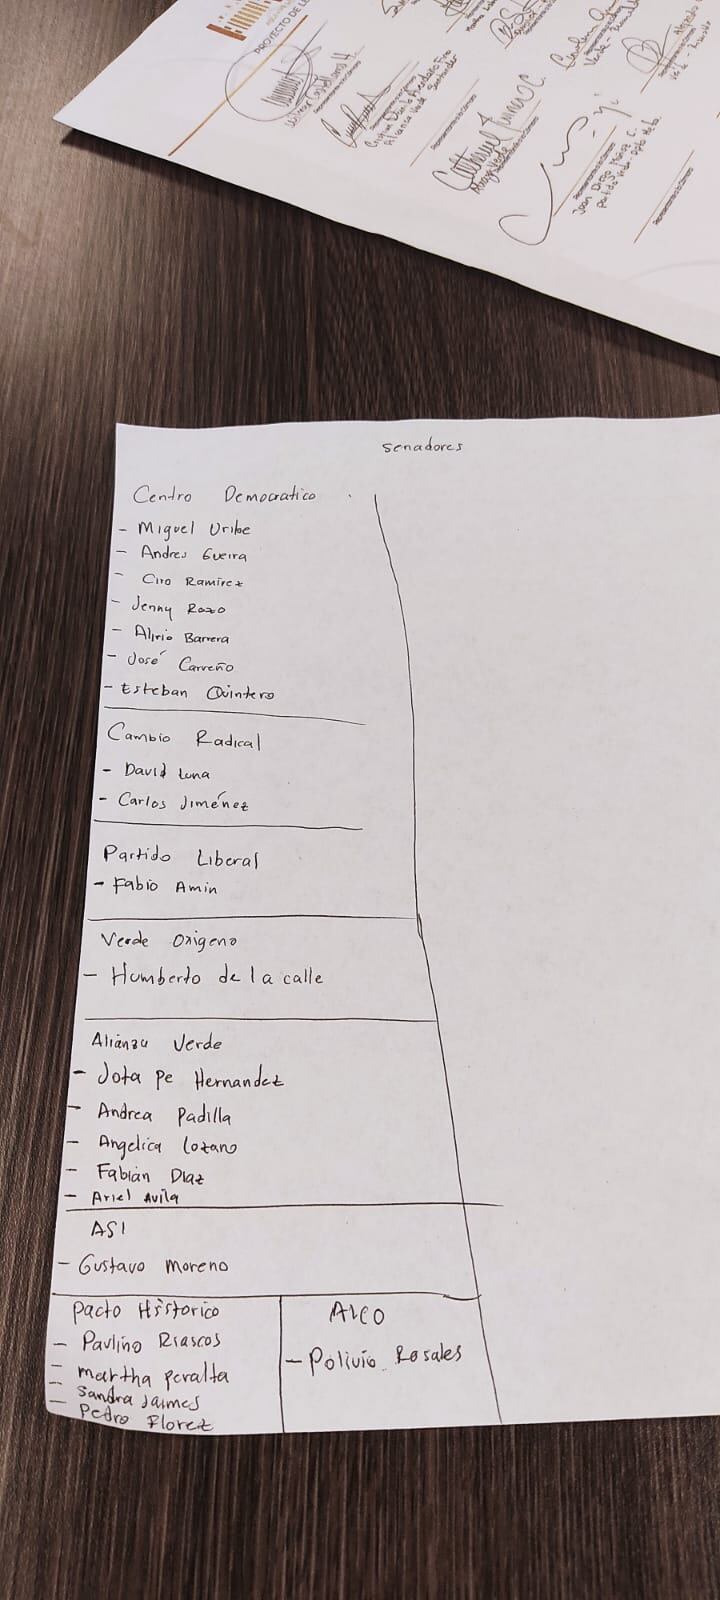 PROYECTO DE LE
Juan Diego Muñoz C.
Senadores
Centro Democratico
- Miguel Uribe
- Andres Gueira
- Ciro Ramirez
- Jenny Rozo
- Alirio Barrera
- José Carreño
- Esteban Quintero
Cambio Radical
- David Luna
- Carlos Jiménez
Partido Liberal
- Fabio Amin
Verde Oxigeno
- Humberto de la calle
Alianza Verde
- Jota Pe Hernandez
- Andrea Padilla
- Angelica Lozano
- Fabián Díaz
- Ariel Avila
ASI
- Gustavo Moreno
Pacto Historico
- Paulino Riascos
- martha peralta
- Sandra Jaimes
- Pedro Florez
AICO
- Polivio Rosales